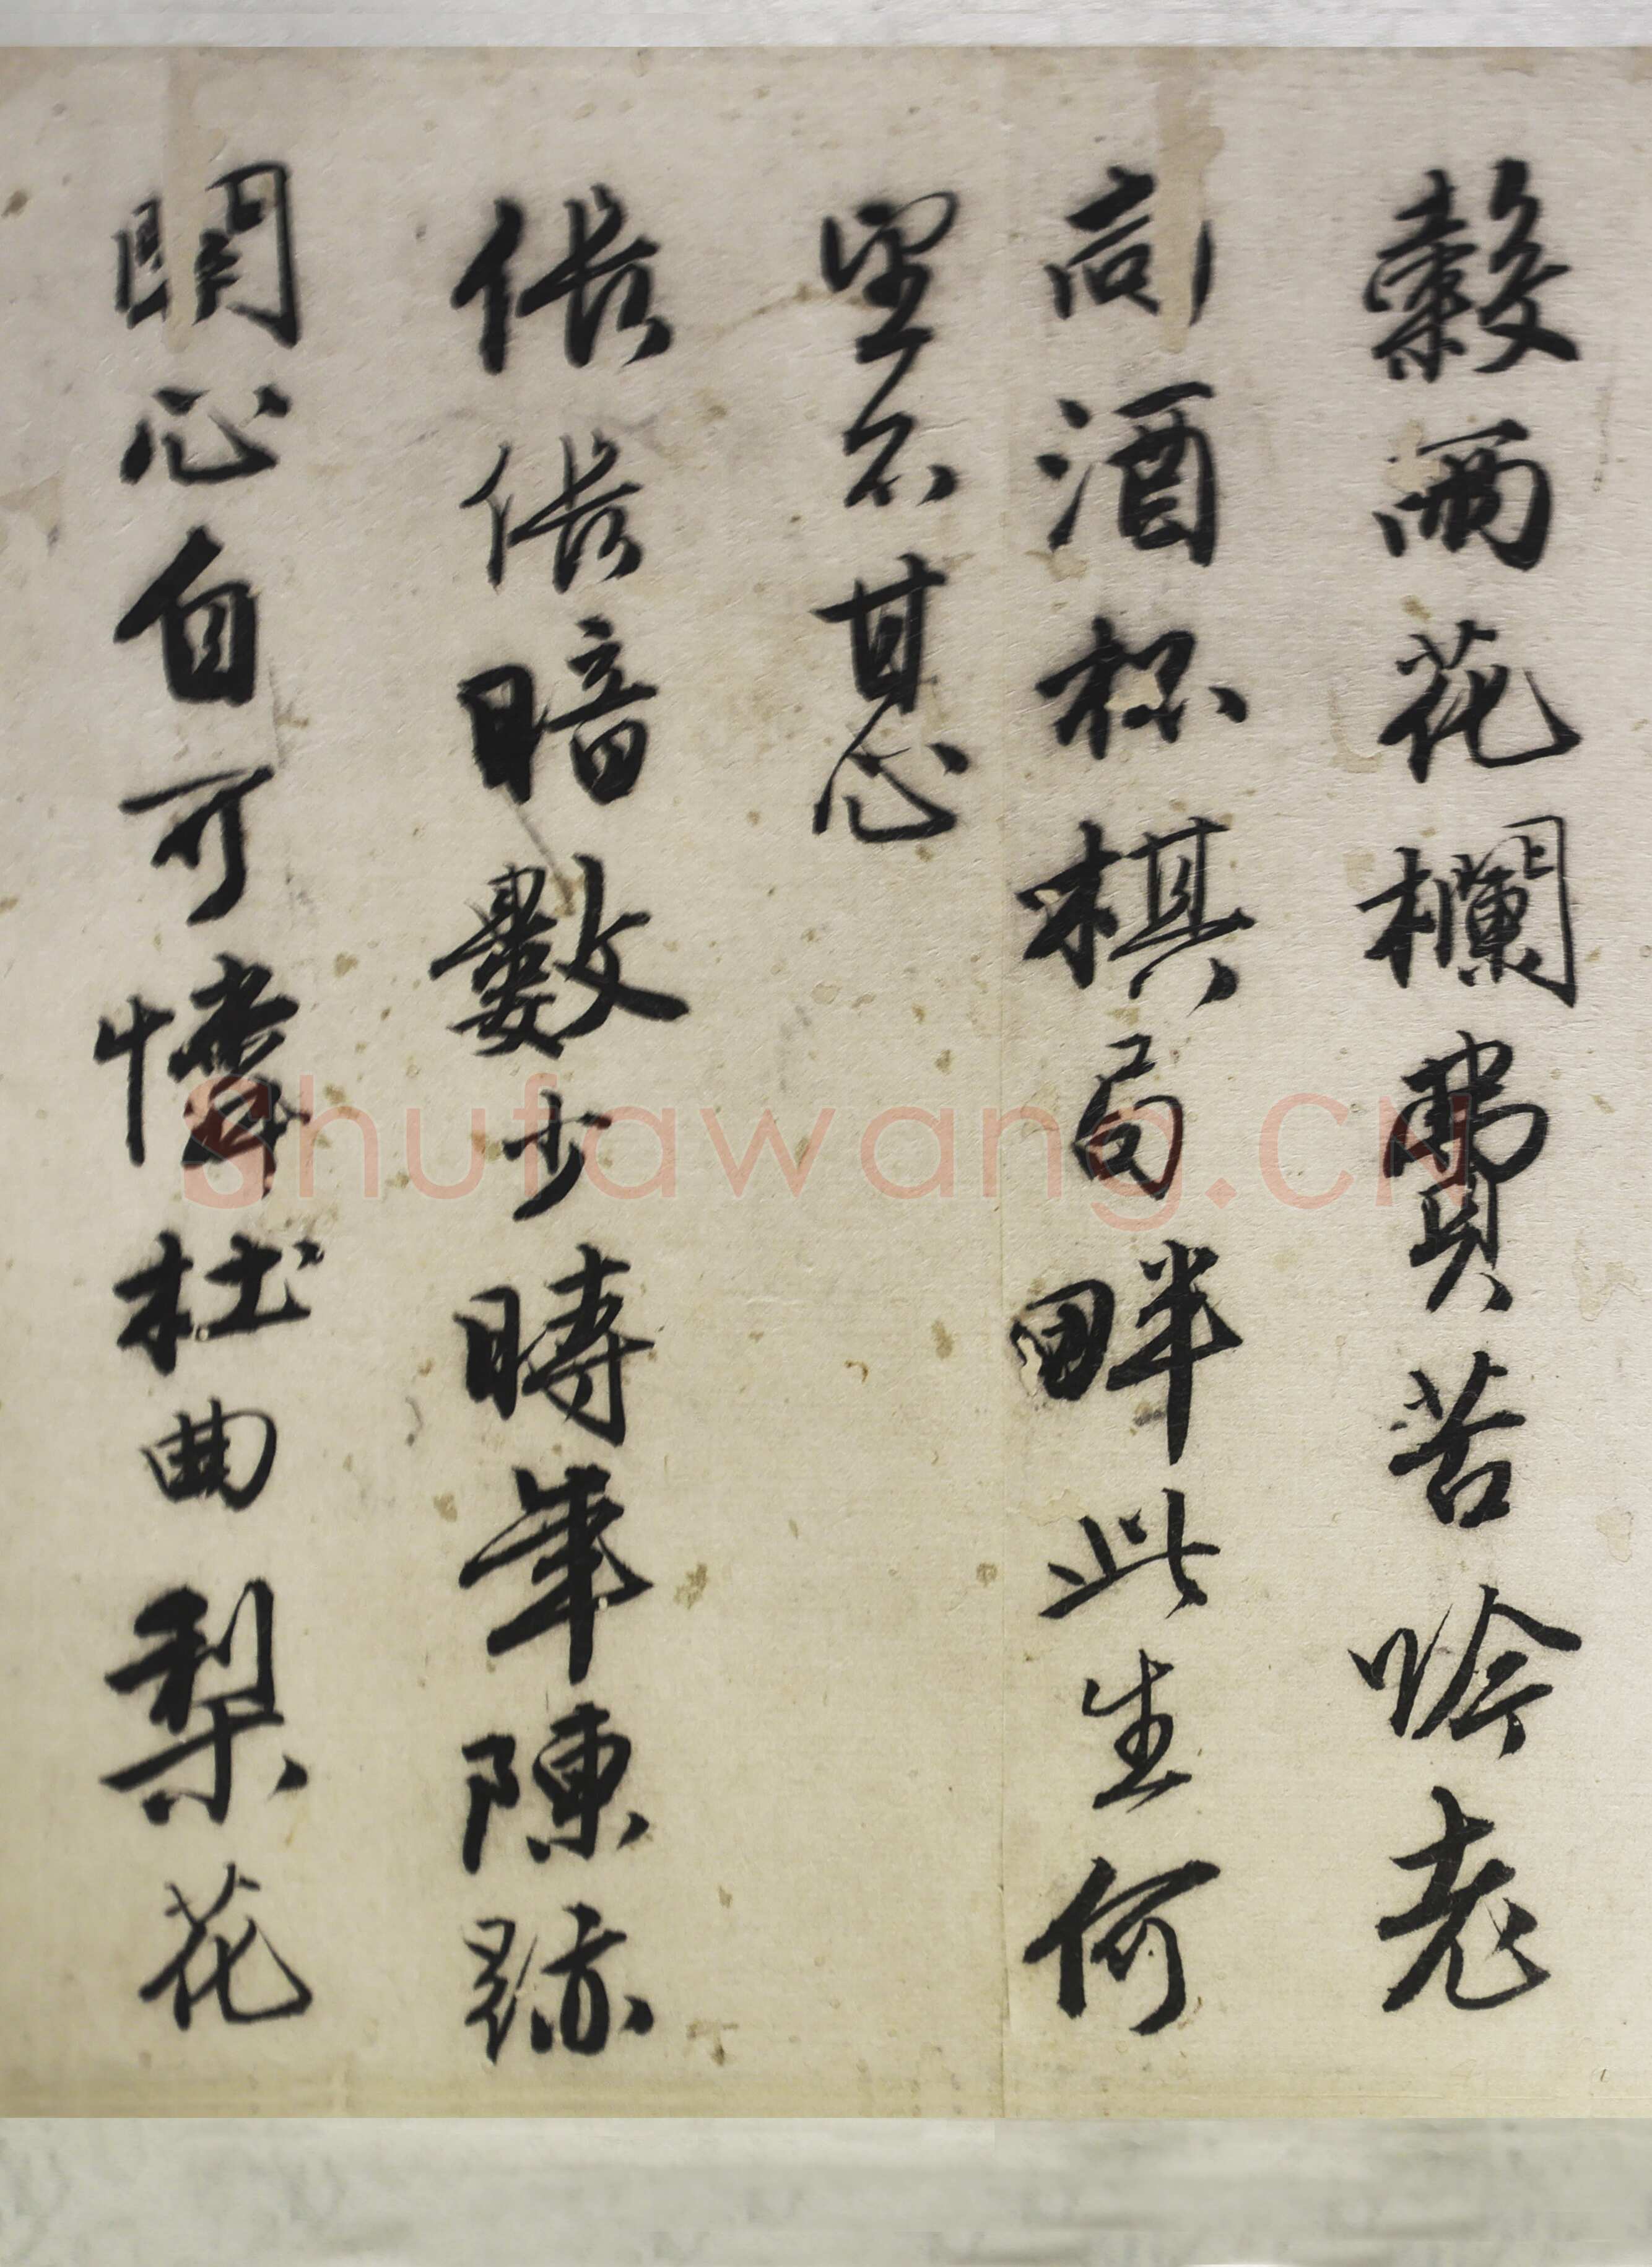 穀雨花欄費苦吟老
向酒杯棋局畔此生何
望不甘心
倀倀暗數少時年陳跡
關心自可憐杜曲梨花
shufawang.cn